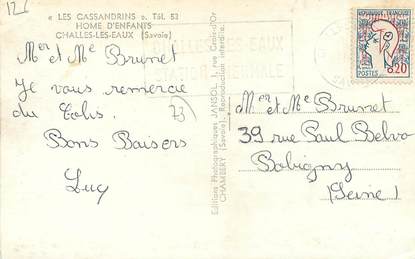 126
« LES CASSANDRINS ». Tél. 53
HOME D'ENFANTS
CHALLES-LES-EAUX (Savoie)
Mr et Me Brunet
Je vous remercie
du Colis.
Bons Baisers
Lucy
73
CHALLES-LES-EAUX
STATION THERMALE
Editions Photographiques JANSOL,
CHAMBERY (Savoie) - Reproduction interdite.
REPUBLIQUE FRANÇAISE
POSTES
0,20
Mr et Me Brunet
39 rue Paul Belva
Bobigny
(Seine)